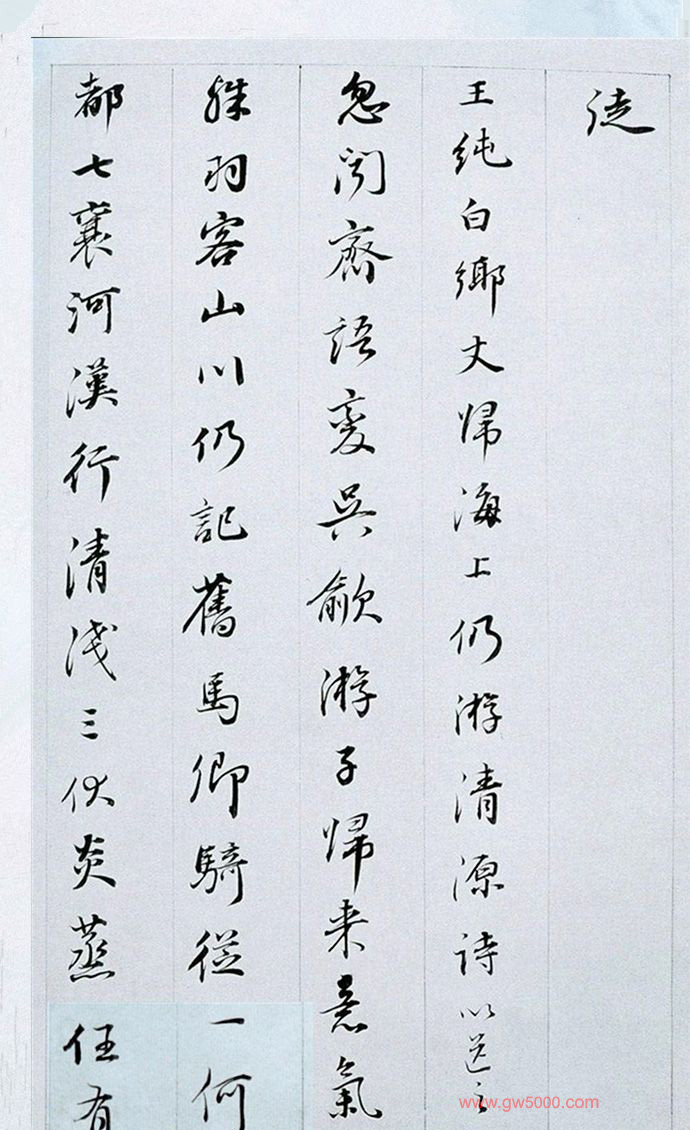 徒
王純白鄉丈歸海上仍游清源詩以送之
忽聞齊語變吳歈游子歸来意氣
殊羽客山川仍記舊馬卿騎從一何
都七襄河漢行清淺三伏炎蒸任有
www.gw5000.com